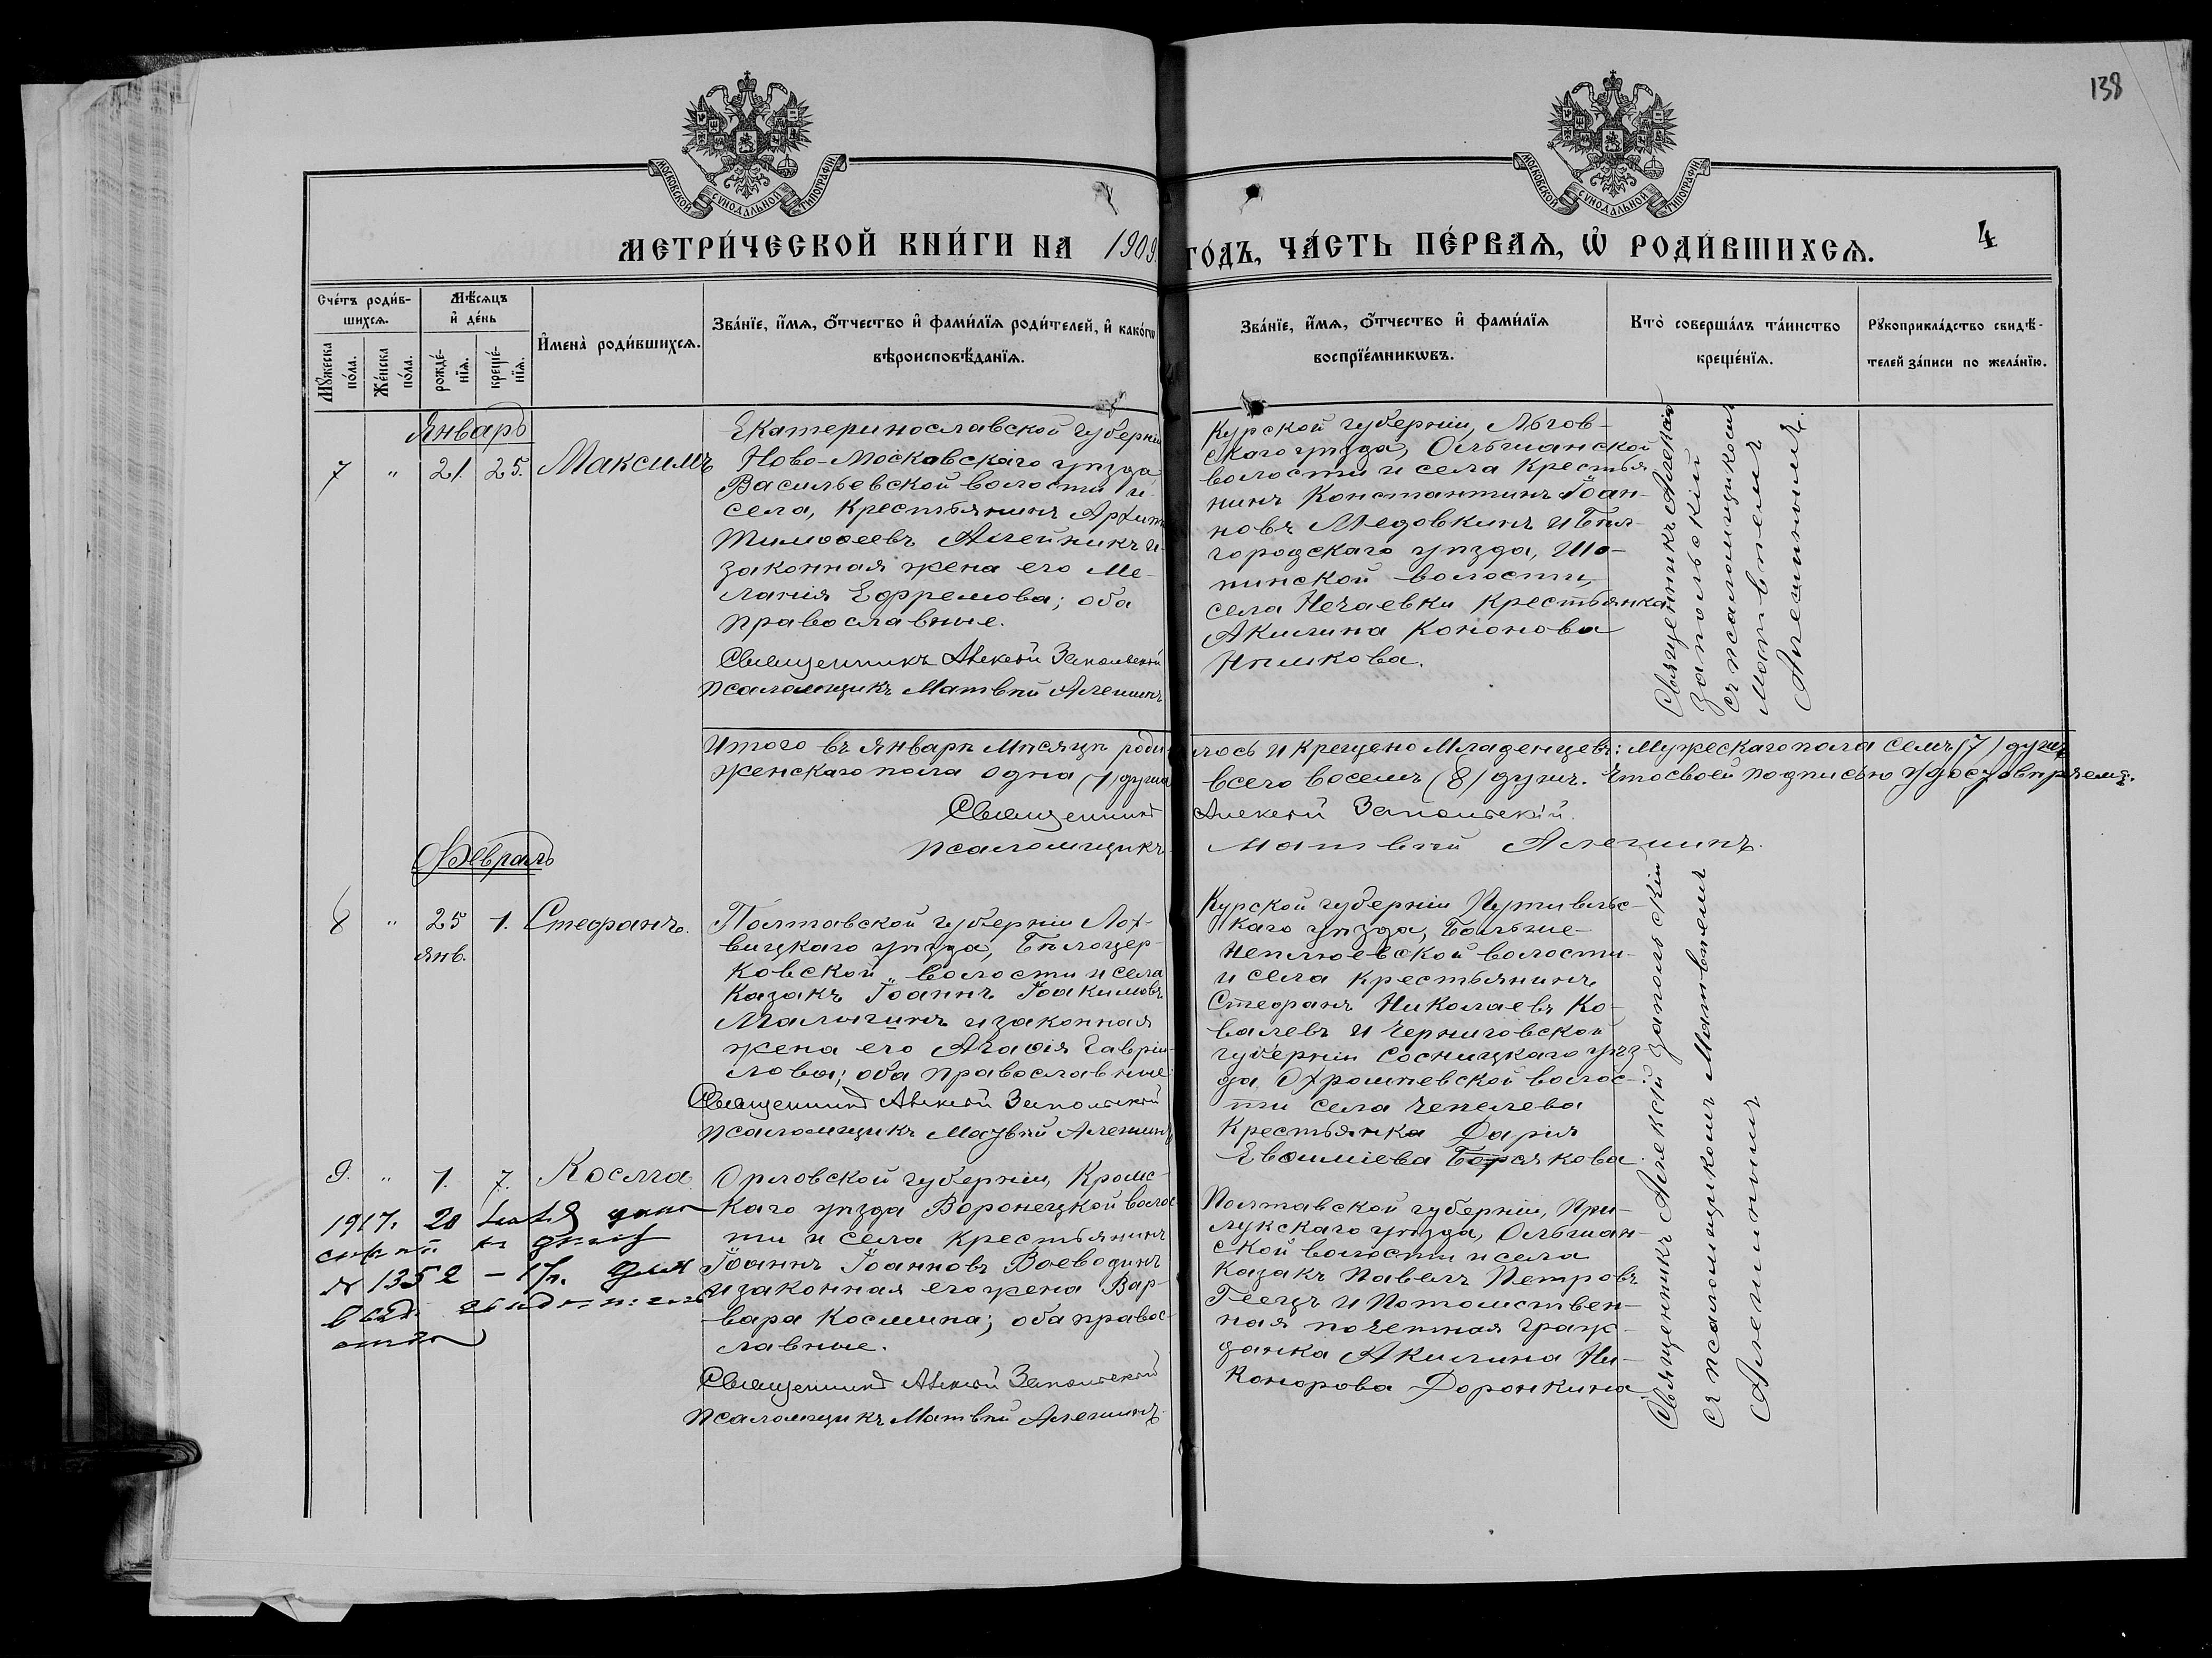 138
МОСКОВСКОЙ СѴНОДАЛЬНОЙ ТИПОГРАФІИ
МОСКОВСКОЙ СѴНОДАЛЬНОЙ ТИПОГРАФІИ
МЕТРИ́ЧЕСКОЙ КНИ́ГИ НА 1909 ГО́ДЪ, ЧА́СТЬ ПЕ́РВАѦ, Ѡ҆ РОДИ́ВШИХСѦ.
4
Сче́тъ роди́в-
шихсѧ.
Мѣ́сѧцъ
и҆ де́нь
Мꙋ́жеска
по́ла.
Же́нска
по́ла.
рожде́-
нїѧ.
креще́-
нїѧ.
И҆мена̀ роди́вшихсѧ.
Зва́нїе, и҆́мѧ, ѻ҆́тчество и҆ фами́лїѧ роди́телей, и҆ како́гѡ
вѣроисповѣ́данїѧ.
Зва́нїе, и҆́мѧ, ѻ҆́тчество и҆ фами́лїѧ
воспрїе́мникѡвъ.
Кто̀ соверша́лъ та́инство
креще́нїѧ.
Рꙋкоприкла́дство свидѣ́-
телей за́писи по жела́нїю.
Январь
7 " 21. 25. Максимъ
Екатеринославской губерніи
Ново-Московскаго уѣзда
Васильевской волости и
села, крестьянинъ Архипъ
Тимоѳеевъ Алейникъ и
законная жена его Ме-
ланія Ефремова; оба
православные.
Священникъ Алексій Запольскій
псаломщикъ Матвѣй Алешинъ
Курской губерніи, Льгов-
скаго уѣзда, Ольшанской
волости и села крестья-
нинъ Константинъ Іоан-
новъ Медовкинъ и Бѣл-
городскаго уѣзда, Шо-
пинской волости,
села Нечаевки крестьянка
Акилина Кононова
Священникъ Алексій
Запольскій
съ псаломщикомъ
Матвѣемъ
Алешинымъ.
Итого въ Январѣ мѣсяцѣ родилось и крещено младенцевъ: мужескаго пола семь (7) душъ,
женскаго пола одна (1) душа всего восемь (8) душъ. Что своей подписью удостовѣряемъ:
Священникъ Алексій Запольскій.
псаломщикъ Матвѣй Алешинъ.
Февраль
8 " 25 1. Стефанъ.
янв.
Полтавской губерніи Лох-
вицкаго уѣзда, Бѣлоцер-
ковской волости и села
казакъ Іоаннъ Іоакимовъ
Малыгинъ и законная
жена его Агаѳія Гавріи-
лова; оба православные
Священникъ Алексій Запольскій
псаломщикъ Матвѣй Алешинъ
Курской губерніи Путивльс-
каго уѣзда, Больше-
Неплюевской волости
и села крестьянинъ
Стефанъ Николаевъ Ко-
валевъ и Черниговской
губерніи Сосницкаго уѣз-
да Охромѣевской волос-
ти села Чепелева
крестьянка Дарія
Евѳиміева Борсякова.
9. " 1. 7. Косма
Орловской губерніи, Кромс-
каго уѣзда Воронецкой волос-
ти и села крестьянинъ
Іоаннъ Іоанновъ Воеводинъ
и законная его жена Вар-
вара Космина; оба правос-
лавные.
Священникъ Алексій Запольскій
псаломщикъ Матвѣй Алешинъ.
1917. 20
№ 1352 – 17 г. для
Полтавской губерніи, При-
лукскаго уѣзда, Ольшан-
ской волости и села
казакъ Павелъ Петровъ
Геецъ и потомствен-
ная почетная граж-
данка Акилина Ни-
конорова Доронкина.
Священникъ Алексій Запольскій
съ псаломщикомъ Матвѣемъ
Алешинымъ